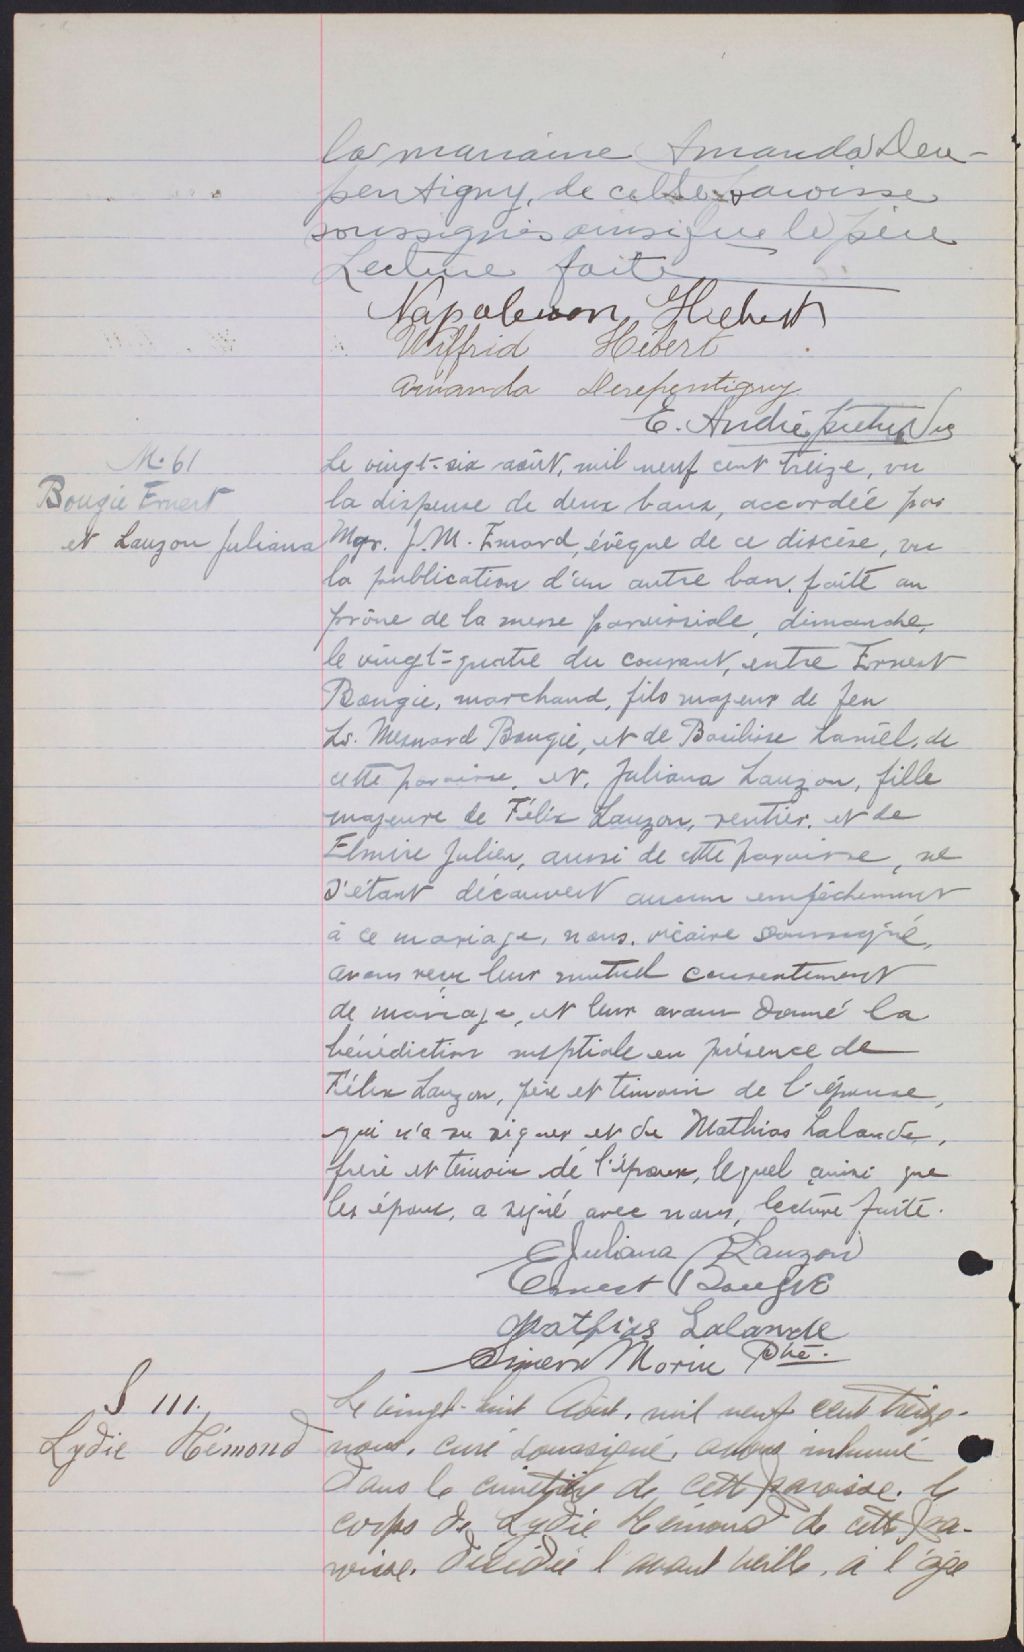 la marraine Amanda Dere-
pentigny, de cette paroisse
soussignés ainsi que le père
Lecture faite
Napoleon Hebert
Wilfrid Hébert
Amanda Derepentigny
E. André ptre Vic
M. 61
Bougie Ernest
et Lauzon Juliana
Le vingt-six août, mil neuf cent treize, vu
la dispense de deux bans, accordée par
Mgr. J. M. Emard, évêque de ce diocèse, vu
la publication d'un autre ban, faite au
prône de la messe paroissiale, dimanche,
le vingt-quatre du courant, entre Ernest
Bougie, marchand, fils majeur de feu
Ls. Mesnard Bougie, et de Basilisse Daniel, de
cette paroisse, et, Juliana Lauzon, fille
majeure de Félix Lauzon, rentier, et de
Elmire Julien, aussi de cette paroisse, ne
s'étant découvert aucun empêchement
à ce mariage, nous, vicaire soussigné,
avons reçu leur mutuel consentement
de mariage, et leur avons donné la
bénédiction nuptiale en présence de
Félix Lauzon, père et témoin de l'épouse,
qui n'a su signer et de Mathias Lalande,
frère et témoin de l'époux, lequel ainsi que
les époux, a signé avec nous, lecture faite.
Juliana Lauzon
Ernest Bougie
Mathias Lalande
Simeon Morin Ptre.
S 111.
Lydie Hémond
Le vingt-huit Août, mil neuf cent treize,
nous, curé soussigné, avons inhumé
dans le cimetière de cette paroisse, le
corps de Lydie Hémond de cette pa-
roisse, décédée l'avant veille, à l'âge